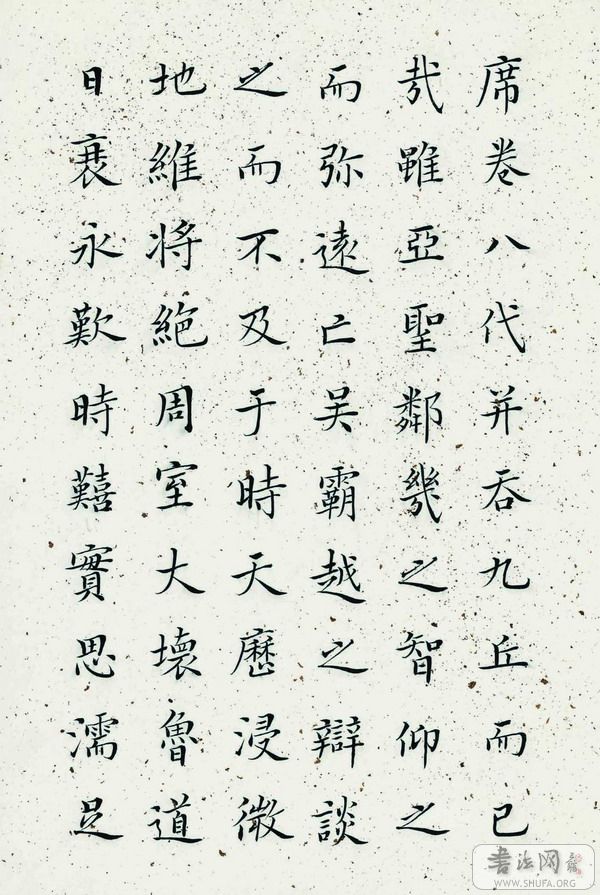 席卷八代并吞九丘而已
哉雖亞聖鄰幾之智仰之
而弥遠亡吴霸越之辯談
之而不及于時天歷浸微
地維将絶周室大壞魯道
日衰永歎時囏實思濡足
書法网
WWW.SHUFA.ORG